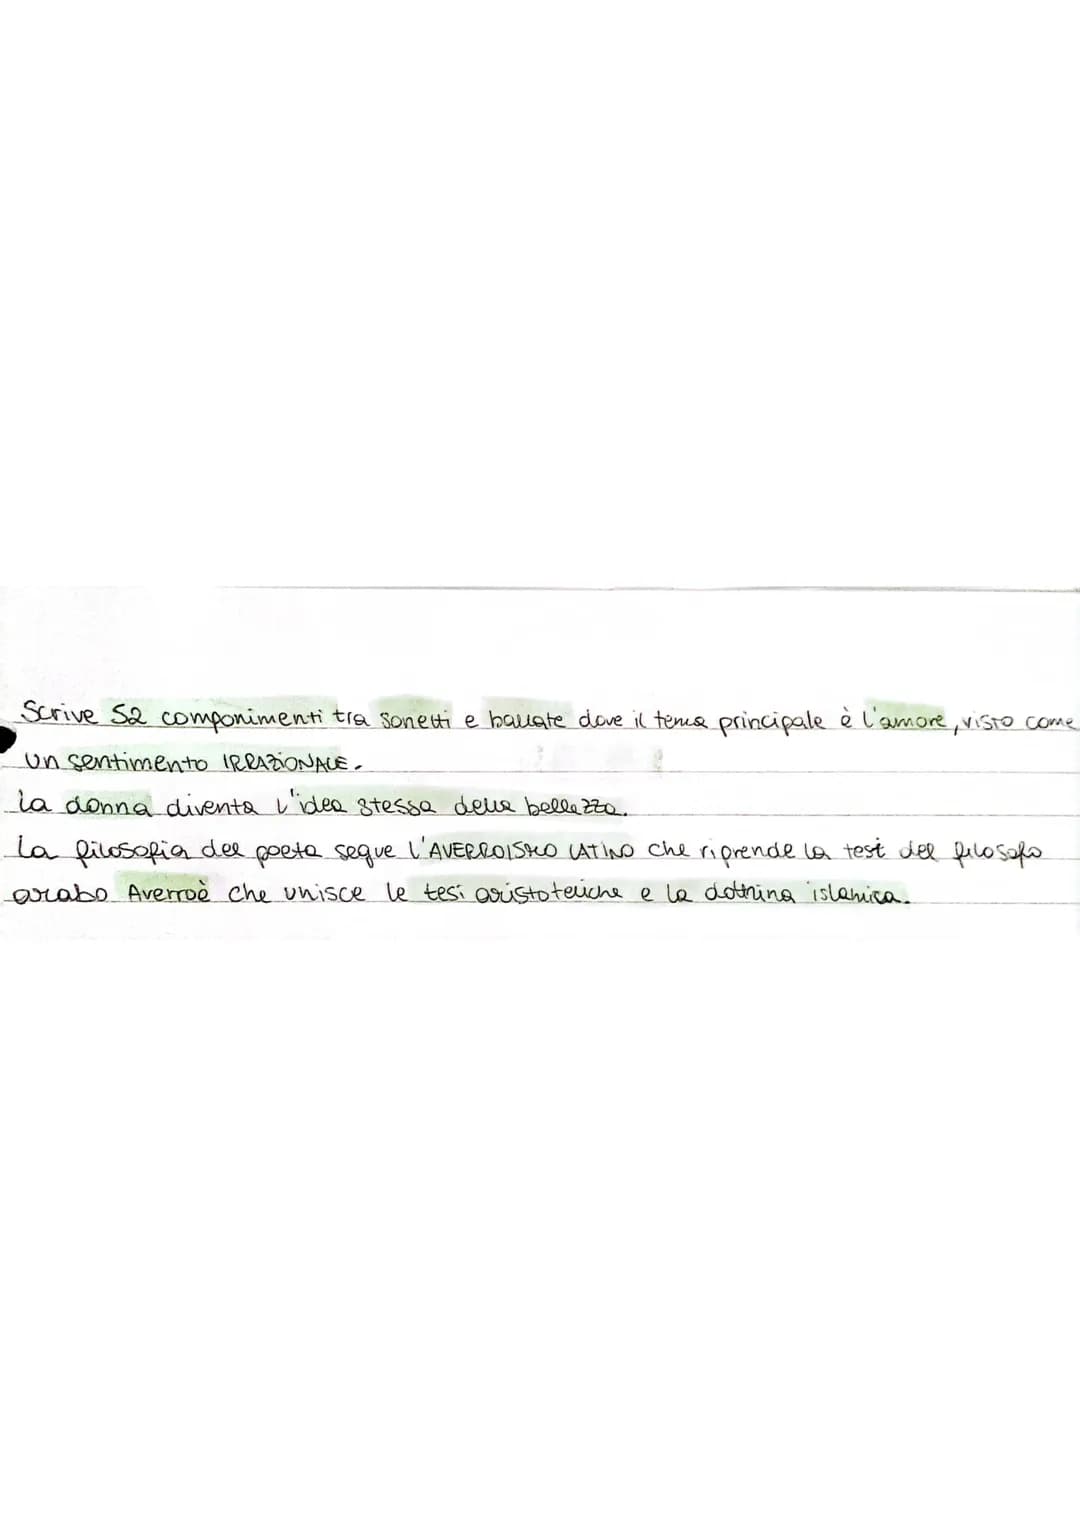 Scrive 52 componimenti tra sonetti e ballate dove il tema principale è l'amore, visto come
un sentimento IRRAZIONALE.
La donna diventa l'idea stessa della bellezza.
La filosofia del poeta segue l'AVERROISMO LATINO che riprende la test del filosofo
arabo Averroè che unisce le tesi aristoteliche e la dottrina islamica.